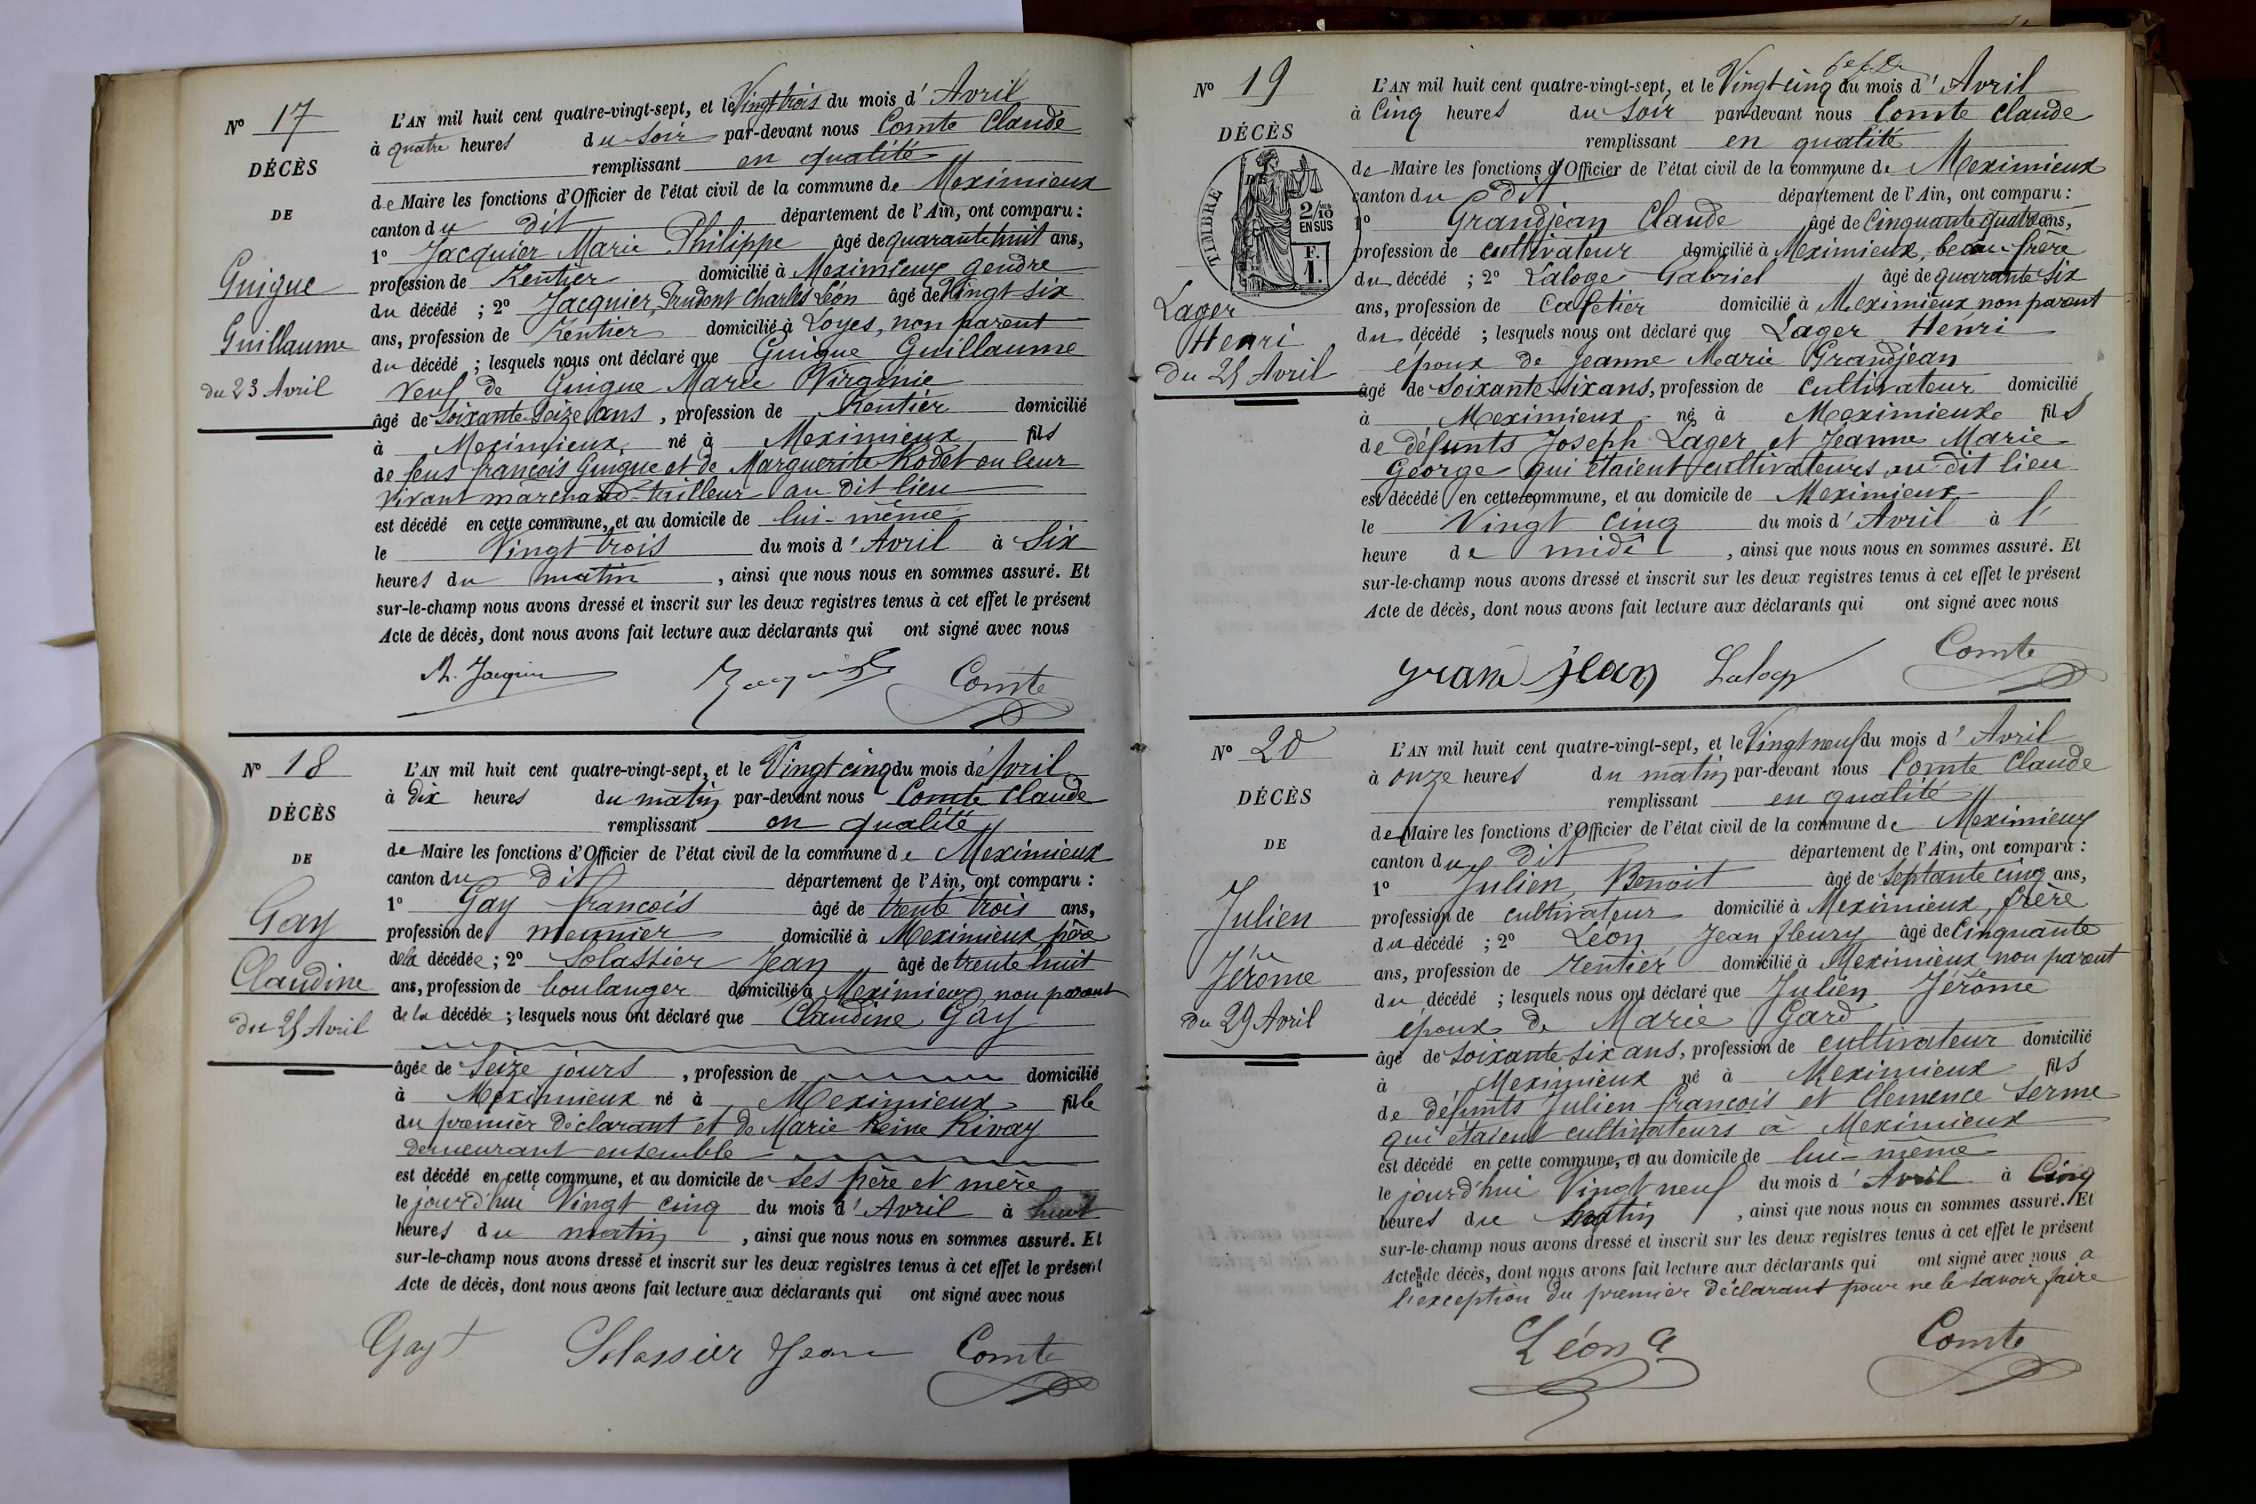 N° 17
DÉCÈS
DE
Guigue
Guillaume
du 23 Avril
L'AN mil huit cent quatre-vingt-sept, et le Vingt trois du mois d'Avril
à quatre heures du soir par-devant nous Comte Claude
remplissant en qualité
de Maire les fonctions d'Officier de l'état civil de la commune de Meximieux
canton du dit département de l'Ain, ont comparu :
1° Jacquier Marie Philippe âgé de quarante huit ans,
profession de Rentier domicilié à Meximieux gendre
du décédé ; 2° Jacquier, Prudent Charles Léon âgé de Vingt-six
ans, profession de Rentier domicilié à Loyes, non parent
du décédé ; lesquels nous ont déclaré que Guigue Guillaume
Veuf de Guigue Marie Virginie
âgé de Soixante-seize ans, profession de Rentier domicilié
à Meximieux, né à Meximieux fils
de feus françois Guigue et de Marguerite Rodet en leur
vivant marchand-tailleur au dit lieu
est décédé en cette commune, et au domicile de lui-même
le Vingt trois du mois d'Avril à Six
heures du matin, ainsi que nous nous en sommes assuré. Et
sur-le-champ nous avons dressé et inscrit sur les deux registres tenus à cet effet le présent
Acte de décès, dont nous avons fait lecture aux déclarants qui ont signé avec nous
Comte
N° 18
DÉCÈS
DE
Gay
Claudine
du 25 Avril
L'AN mil huit cent quatre-vingt-sept, et le Vingt cinq du mois d'Avril
à Dix heures du matin par-devant nous Comte Claude
remplissant en qualité
de Maire les fonctions d'Officier de l'état civil de la commune de Meximieux
canton du dit département de l'Ain, ont comparu :
1° Gay françois âgé de trente trois ans,
profession de meunier domicilié à Meximieux père
de la décédée ; 2° Solassier Jean âgé de trente huit
ans, profession de boulanger domicilié à Meximieux non parent
de la décédée ; lesquels nous ont déclaré que Claudine Gay
âgée de Seize jours, profession de domicilié
à Meximieux né à Meximieux fille
du premier déclarant et de Marie Reine Rivay
demeurant ensemble
est décédé en cette commune, et au domicile de ses père et mère
le jourd'hui Vingt cinq du mois d'Avril à huit
heures du matin, ainsi que nous nous en sommes assuré. Et
sur-le-champ nous avons dressé et inscrit sur les deux registres tenus à cet effet le présent
Acte de décès, dont nous avons fait lecture aux déclarants qui ont signé avec nous
Gay Solassier Jean Comte
N° 19
DÉCÈS
TIMBRE
2/10
EN SUS
F.
1.
Lager
Henri
Du 25 Avril
L'AN mil huit cent quatre-vingt-sept, et le Vingt cinq du mois d'Avril
à Cinq heures du soir par-devant nous Comte Claude
remplissant en qualité
de Maire les fonctions d'Officier de l'état civil de la commune de Meximieux
canton du dit département de l'Ain, ont comparu :
1° Grandjean Claude âgé de Cinquante quatre ans,
profession de cultivateur domicilié à Meximieux, beau-frère
du décédé ; 2° Laloge Gabriel âgé de quarante six
ans, profession de Cafetier domicilié à Meximieux non parent
du décédé ; lesquels nous ont déclaré que Lager Henri
époux de Jeanne Marie Grandjean
âgé de Soixante-six ans, profession de Cultivateur domicilié
à Meximieux né à Meximieux fils
de défunts Joseph Lager et Jeanne Marie
George qui étaient cultivateurs au dit lieu
est décédé en cette commune, et au domicile de Meximieux
le Vingt cinq du mois d'Avril à l'
heure de midi, ainsi que nous nous en sommes assuré. Et
sur-le-champ nous avons dressé et inscrit sur les deux registres tenus à cet effet le présent
Acte de décès, dont nous avons fait lecture aux déclarants qui ont signé avec nous
Comte
gran jean Laloge
N° 20
DÉCÈS
DE
Julien
Jérôme
Du 29 Avril
L'AN mil huit cent quatre-vingt-sept, et le Vingt neuf du mois d'Avril
à onze heures du matin par-devant nous Comte Claude
remplissant en qualité
de Maire les fonctions d'Officier de l'état civil de la commune de Meximieux
canton du dit département de l'Ain, ont comparu :
1° Julien, Benoit âgé de Septante cinq ans,
profession de cultivateur domicilié à Meximieux, frère
du décédé ; 2° Léon Jean fleury âgé de Cinquante
ans, profession de rentier domicilié à Meximieux non parent
du décédé ; lesquels nous ont déclaré que Julien Jérôme
époux de Marie Gard
âgé de soixante-six ans, profession de cultivateur domicilié
à Meximieux né à Meximieux fils
de défunts Julien françois et Clemence Serme
qui étaient cultivateurs à Meximieux
est décédé en cette commune, et au domicile de lui-même
le jourd'hui Vingt neuf du mois d'Avril à Cinq
heures du matin, ainsi que nous nous en sommes assuré. Et
sur-le-champ nous avons dressé et inscrit sur les deux registres tenus à cet effet le présent
Acte de décès, dont nous avons fait lecture aux déclarants qui ont signé avec nous a
l'exception du premier déclarant pour ne le savoir faire
Léon Comte